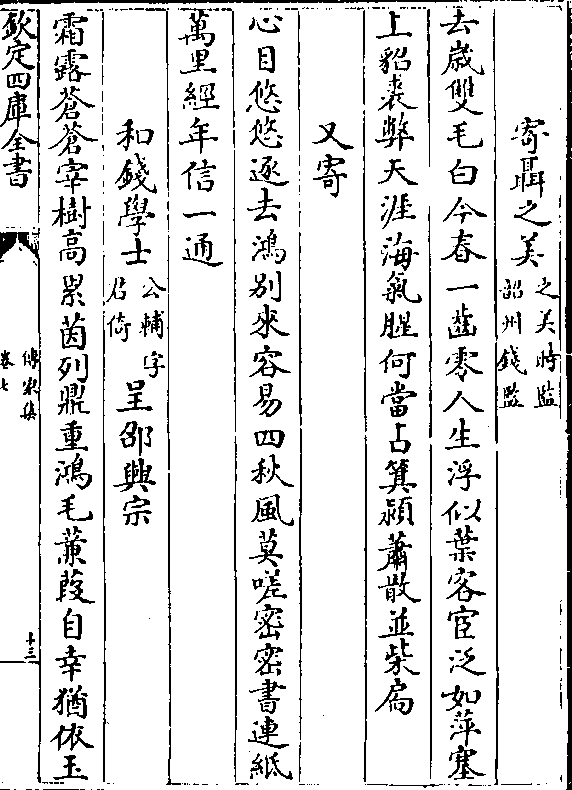 寄聶之美之美時監韶州錢監
去歲雙毛白今春一齒零人生浮似葉客宦泛如萍塞
上貂裘弊天涯海氣腥何當占箕潁蕭散並柴扃
又寄
心目悠悠逐去鴻別來容易四秋風莫嗟密密書連紙
萬里經年信一通
和錢學士公輔字君倚呈邵興宗
霜露蒼蒼宰樹高累茵列鼎重鴻毛蒹葭自幸猶依玉
欽定四庫全書
傳家集
卷七
十三